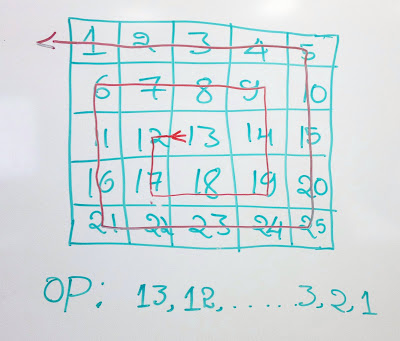 1 2 3 4 5
6 7 8 9 10
11 12 13 14 15
16 17 18 19 20
21 22 23 24 25
OP: 13,12,.....3,2,1